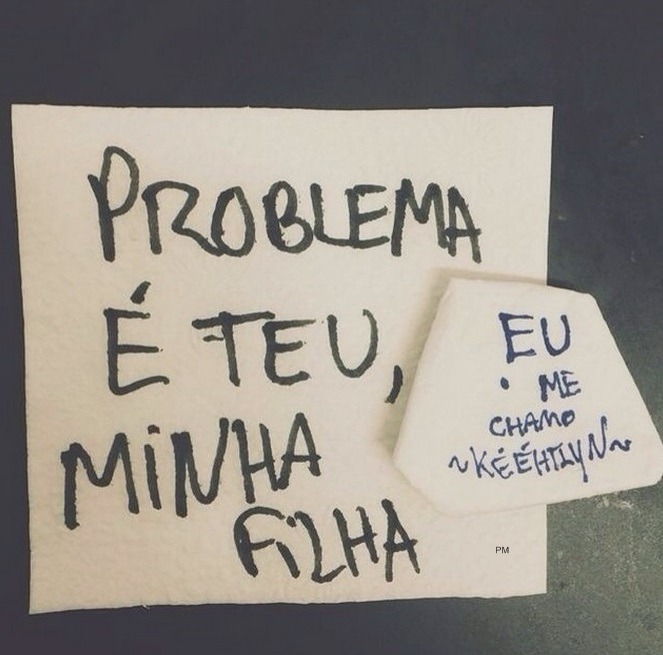 PROBLEMA
É TEU,
MiNHA
FiLHA
EU
• ME
CHAMO
~KÉÉHTLYN~
PM